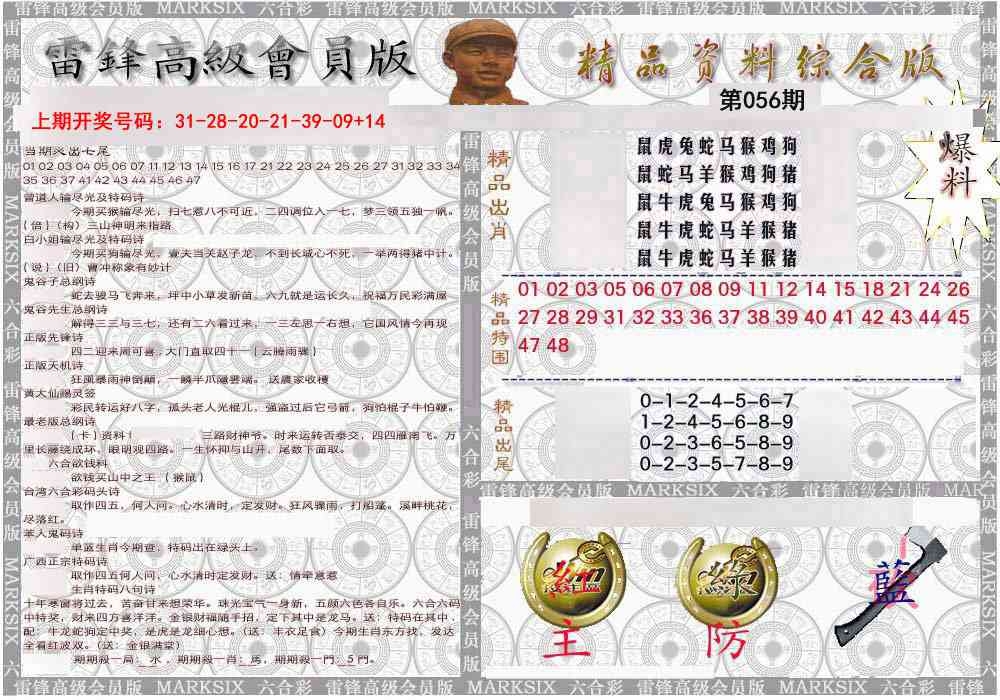 雷鋒高級會員版
精品资料综合版
第056期
上期开奖号码：31-28-20-21-39-09+14
爆料
当期炎出七尾
01 02 03 04 05 06 07 11 12 13 14 15 16 17 21 22 23 24 25 26 27 31 32 33 34
35 36 37 41 42 43 44 45 46 47
曾道人输尽光及特码诗
今期买猴输尽光，扫七惹八不可近，二四调位入一七，梦三领五独一帆。
{倍}（构）三山神明来指路
白小姐输尽光及特码诗
今期买狗输尽光，壹夫当关赵子龙，不到长城心不死，一举两得猪中计。
{说}（旧）曹冲称象有妙计
鬼谷子总纲诗
蛇去骏马飞奔来，坪中小草发新苗，六九就是运长久，祝福万民彩满屋
鬼谷先生总纲诗
解得三三与三七，还有二六看过来，一三左思一右想，它国风情今再现
正版先锋诗
四二迎来周可喜，大门直取四十一{云腾雨骤}
正版天机诗
狂風暴雨神倒顛，一麟半爪隱雲端。 送農家收穫
黄大仙赐灵签
彩民转运好八字，孤头老人光棍儿，强盗过后它弓箭，狗怕棍子牛怕鞭。
最老版总纲诗
{卡}资料！ 三路财神爷。时来运转否泰交，四四雁南飞。万
里长藤绕成环，眼明观四路。一生怀抑与山开，尾数下面取。
六合欲钱料
欲钱买山中之王 {猴鼠}
台湾六合彩码头诗
取作四五，何人问。心水清时，定发财。狂风骤雨，打船篷。溪畔桃花，
尽落红。
本入鬼码诗
单蓝生肖今期查，特码出在绿头上。
广西正宗特码诗
取作四五何人问，心水清时定发财。送：情牵意惹
生肖特码八句诗
十年寒窗将过去，苦奋甘来想荣华。珠光宝气一身新，五颜六色各自乐。六合六码
中特奖，财来四方喜洋洋。金银财福随手招，定下其中是龙马。送：特码在其中，
配：牛龙蛇狗定中奖，是虎是龙细心想。（送：丰衣足食）今期生肖东方找，发达
全看红波双。（送：金银满堂）
期期殺一局：水，期期殺一肖：馬，期期殺一門：5門。
精品出肖
鼠虎兔蛇马猴鸡狗
鼠蛇马羊猴鸡狗猪
鼠牛虎兔马猴鸡狗
鼠牛虎蛇马羊猴猪
鼠牛虎蛇马羊猴猪
精品特围
01 02 03 05 06 07 08 09 11 12 14 15 18 21 24 26
27 28 29 31 32 33 36 37 38 39 40 41 42 43 44 45
47 48
精品出尾
0-1-2-4-5-6-7
1-2-4-5-6-8-9
0-2-3-6-5-8-9
0-2-3-5-7-8-9
雷锋高级会员版 MARKSIX 六合彩
紅
綠
藍
主
防